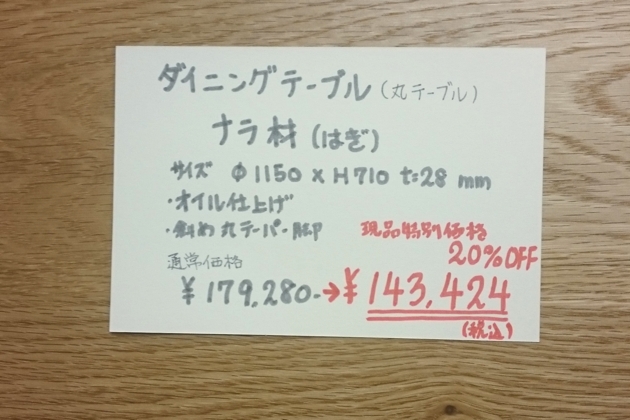 ダイニングテーブル(丸テーブル)
ナラ材(はぎ)
サイズ Φ1150 x H710 t=28 mm
・オイル仕上げ
・斜め丸テーパー脚
現品特別価格
20%OFF
通常価格
¥179,280-→¥143,424
(税込)